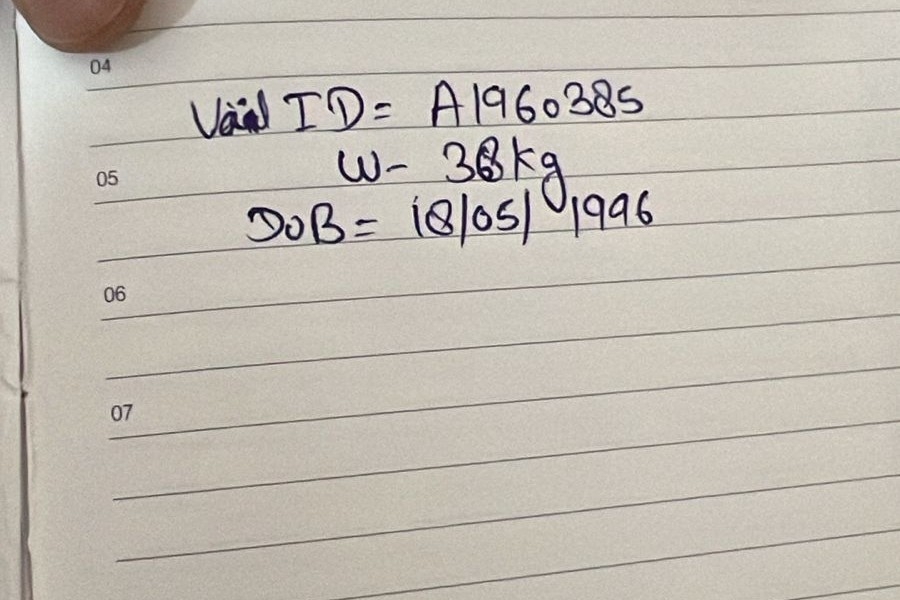 04
ID = A1960385
W - 38kg
05
DOB = 18/05/1996
06
07